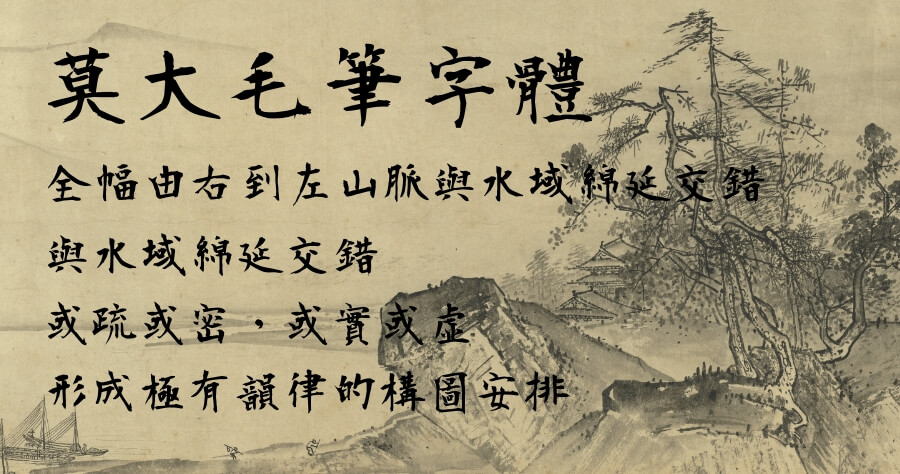 莫大毛筆字體
全幅由右到左山脈與水域綿延交錯
與水域綿延交錯
或疏或密，或實或虛
形成極有韻律的構圖安排